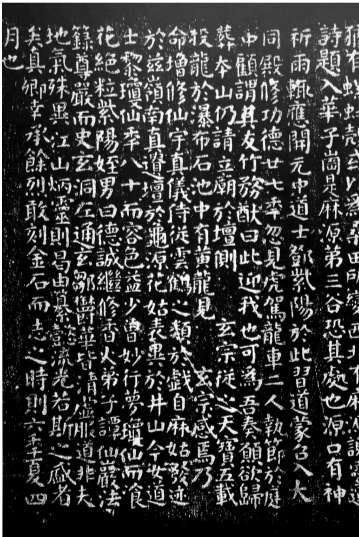 猶有螺蚌殼或以為桑田所變西北有麻源謝靈運
詩題入華子崗是麻源第三谷恐其處也源口有神
祈雨輒應開元中道士鄧紫陽於此習道蒙召入大
同殿修功德廿七年忽見虎駕龍車二人執節於庭
中顧謂其友竹務猷曰此迎我也可為吾奏願欲歸
葬本山仍請立廟於壇側玄宗從之天寶五載
投龍於瀑布石池中有黃龍見玄宗感焉乃
命增修仙宇真儀侍從雲鶴之類於戲自麻姑發迹
於茲嶺南真遺壇於龜源花姑表異於井山今女道
士黎瓊仙年八十而容色益少曾妙行夢瓊仙而飡
花絕粒紫陽姪男曰德誠繼修香火弟子譚仙巖法
籙尊嚴而史玄洞左通玄鄒鬱華皆清虛服道非夫
地氣殊異江山炳靈則曷由纂懿流光若斯之盛者
矣真卿幸承餘烈敢刻金石而志之時則六年夏四
月也